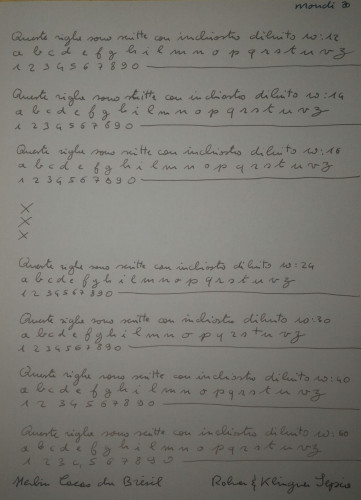 Mondi
Queste righe sono scritte con inchiostro diluito w:12
a b c d e f g h i l m n o p q r s t u v z
1 2 3 4 5 6 7 8 9 0
Queste righe sono scritte con inchiostro diluito w:14
a b c d e f g h i l m n o p q r s t u v z
1 2 3 4 5 6 7 8 9 0
Queste righe sono scritte con inchiostro diluito w:16
a b c d e f g h i l m n o p q r s t u v z
1 2 3 4 5 6 7 8 9 0
X
X
X
Queste righe sono scritte con inchiostro diluito w:24
a b c d e f g h i l m n o p q r s t u v z
1 2 3 4 5 6 7 8 9 0
Queste righe sono scritte con inchiostro diluito w:30
a b c d e f g h i l m n o p q r s t u v z
1 2 3 4 5 6 7 8 9 0
Queste righe sono scritte con inchiostro diluito w:40
a b c d e f g h i l m n o p q r s t u v z
1 2 3 4 5 6 7 8 9 0
Queste righe sono scritte con inchiostro diluito w:60
a b c d e f g h i l m n o p q r s t u v z
1 2 3 4 5 6 7 8 9 0
Herbin Cacao du Brésil Rohrer & Klingner Sepia